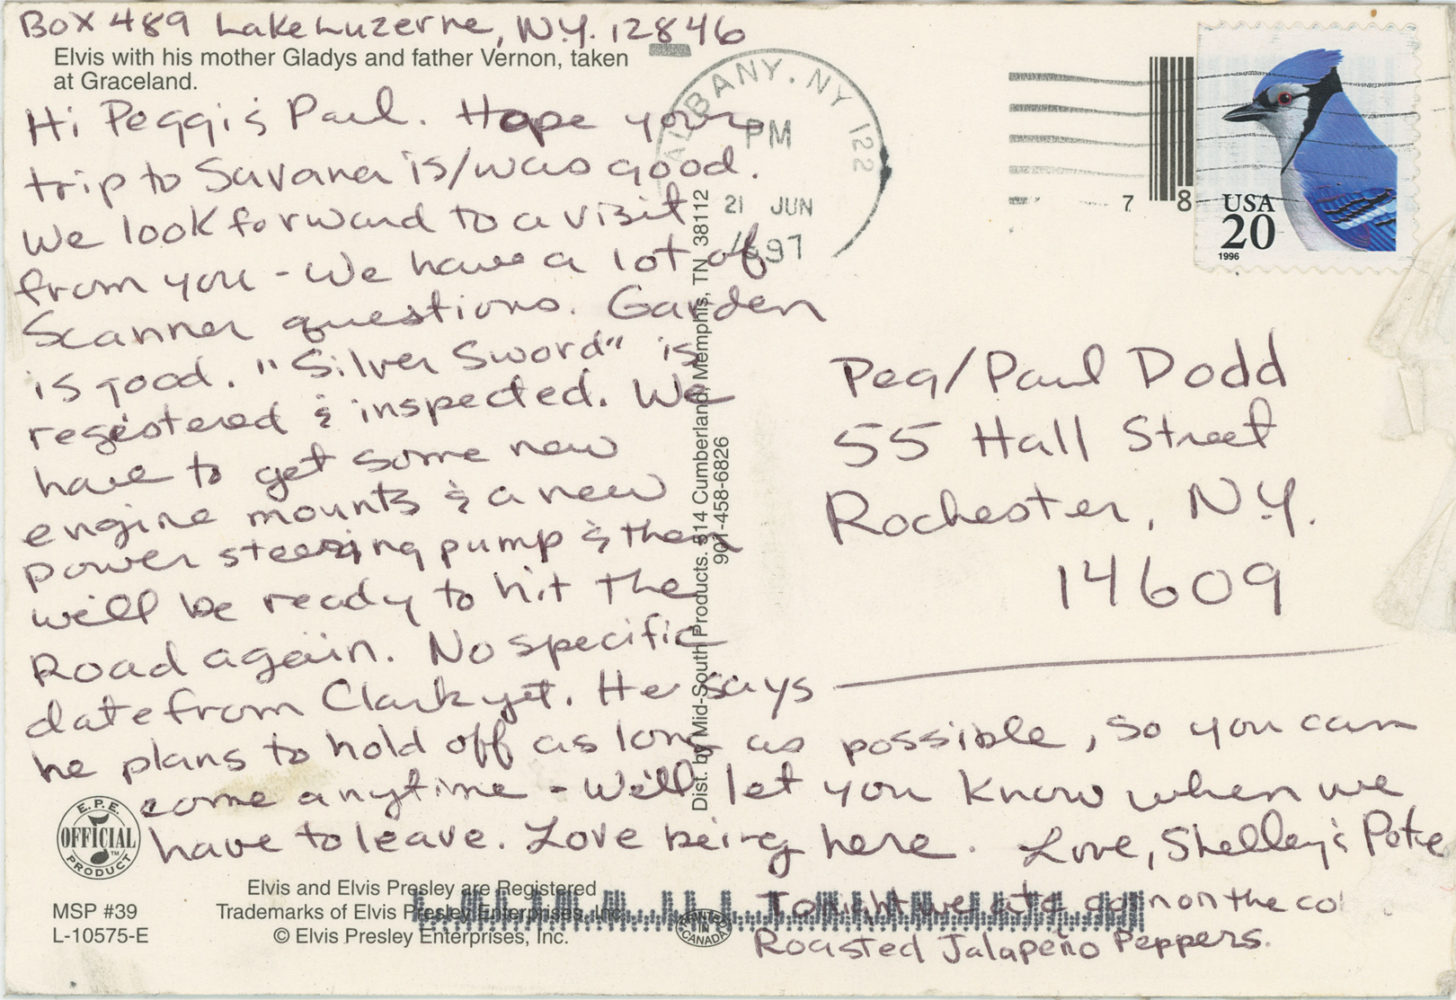 Box 489 Lake Luzerne, N.Y. 12846
Elvis with his mother Gladys and father Vernon, taken
at Graceland.
Hi Peggi & Paul. Hope your
trip to Savana is/was good.
We look forward to a visit
from you - We have a lot of
Scanner questions. Garden
is good. "Silver Sword" is
registered & inspected. We
have to get some new
engine mounts & a new
power steering pump & then
we'll be ready to hit the
Road again. No specific
date from Clark yet. He says
he plans to hold off as long as possible, so you can
come anytime - We'll let you know when we
have to leave. Love being here. Love, Shelley & Pete
Tonight we ate corn on the co
Roasted Jalapeño Peppers.
ALBANY, NY 122
PM
21 JUN
1997
7 8
USA
20
1996
Peg/Paul Dodd
55 Hall Street
Rochester, N.Y.
14609
Dist. by Mid-South Products. 514 Cumberland, Memphis, TN 38112
901-458-6826
E.P.E.
OFFICIAL
PRODUCT
TM
MSP #39
L-10575-E
Elvis and Elvis Presley are Registered
Trademarks of Elvis Presley Enterprises, Inc.
© Elvis Presley Enterprises, Inc.
PRINTED
IN
CANADA